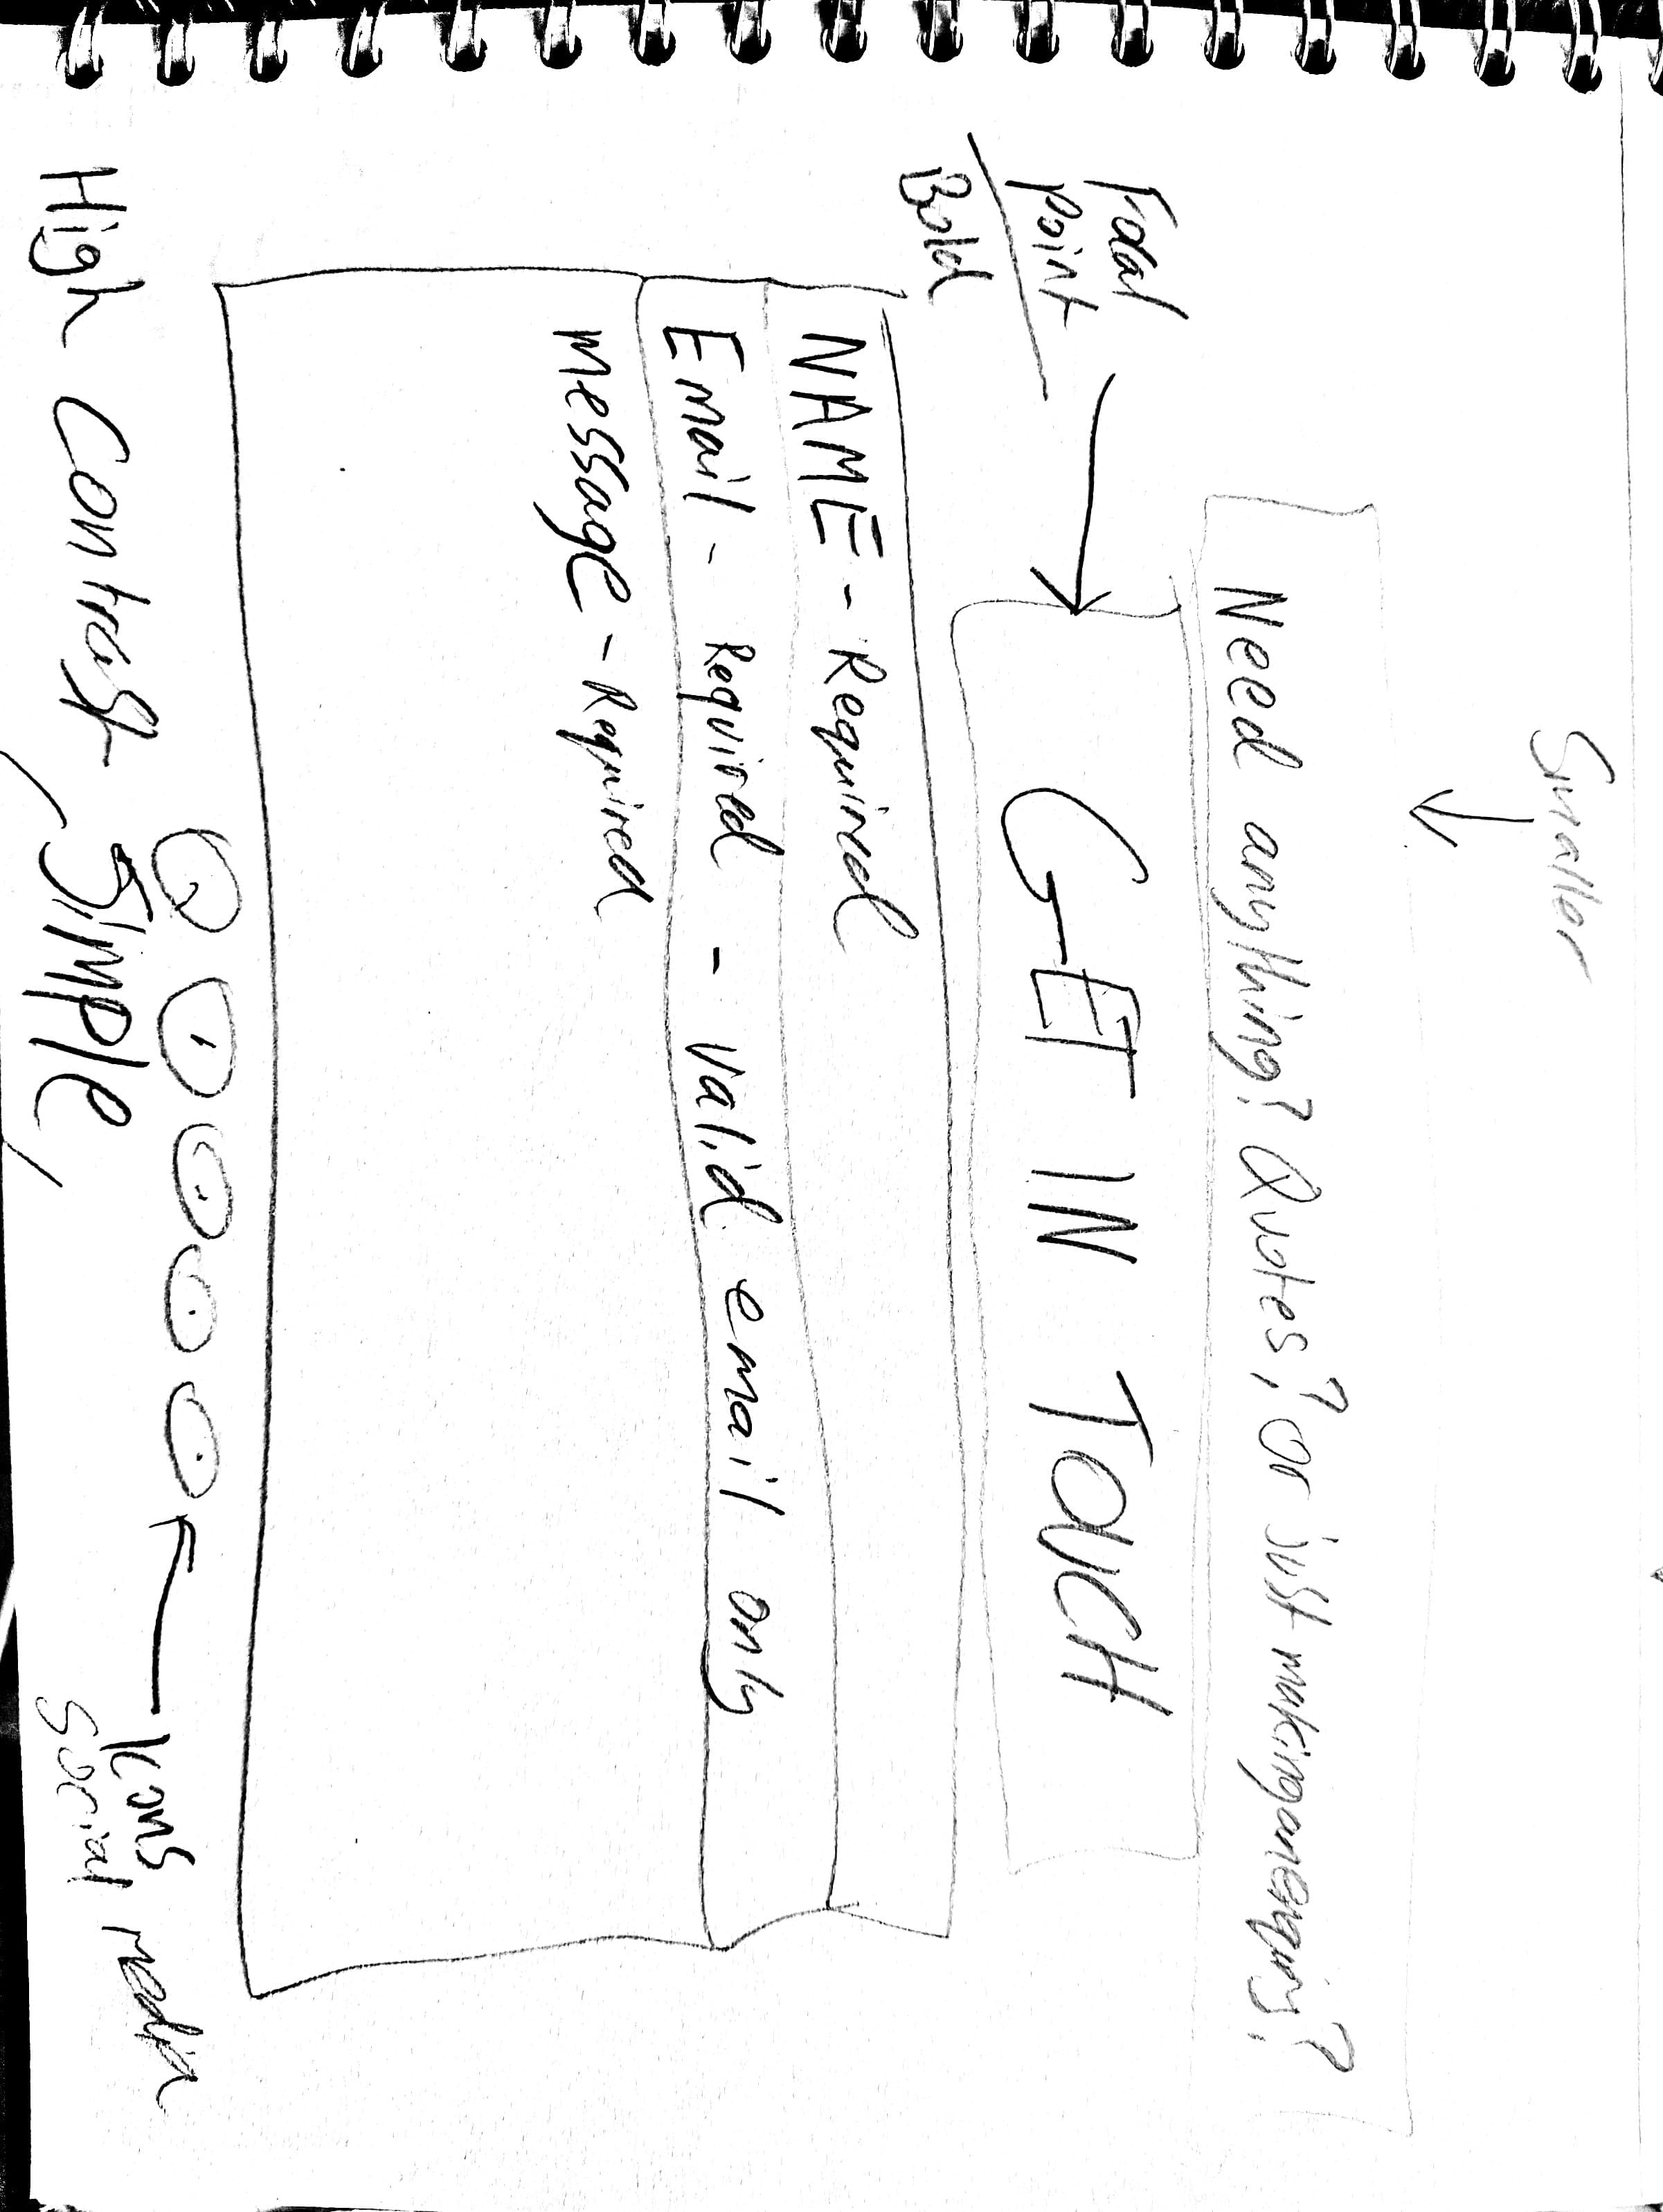 Smaller
Need anything? Quotes? or just making an enquiry?
Focal
point
Bold
GET IN TOUCH
NAME - Required
Email - Required - Valid email only
Message - Required
Icons
Social Media
High Contrast, SIMPLE,